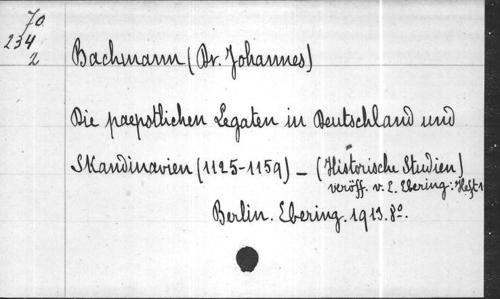 70
234
2
Bachmann (Dr. Johannes)
Die paepstlichen Legaten in Deutschland und
Skandinavien (1125-1159) _ (Historische Studien)
veröff. v. E. Ebering: Heft
Berlin. Ebering. 1913. 8º.